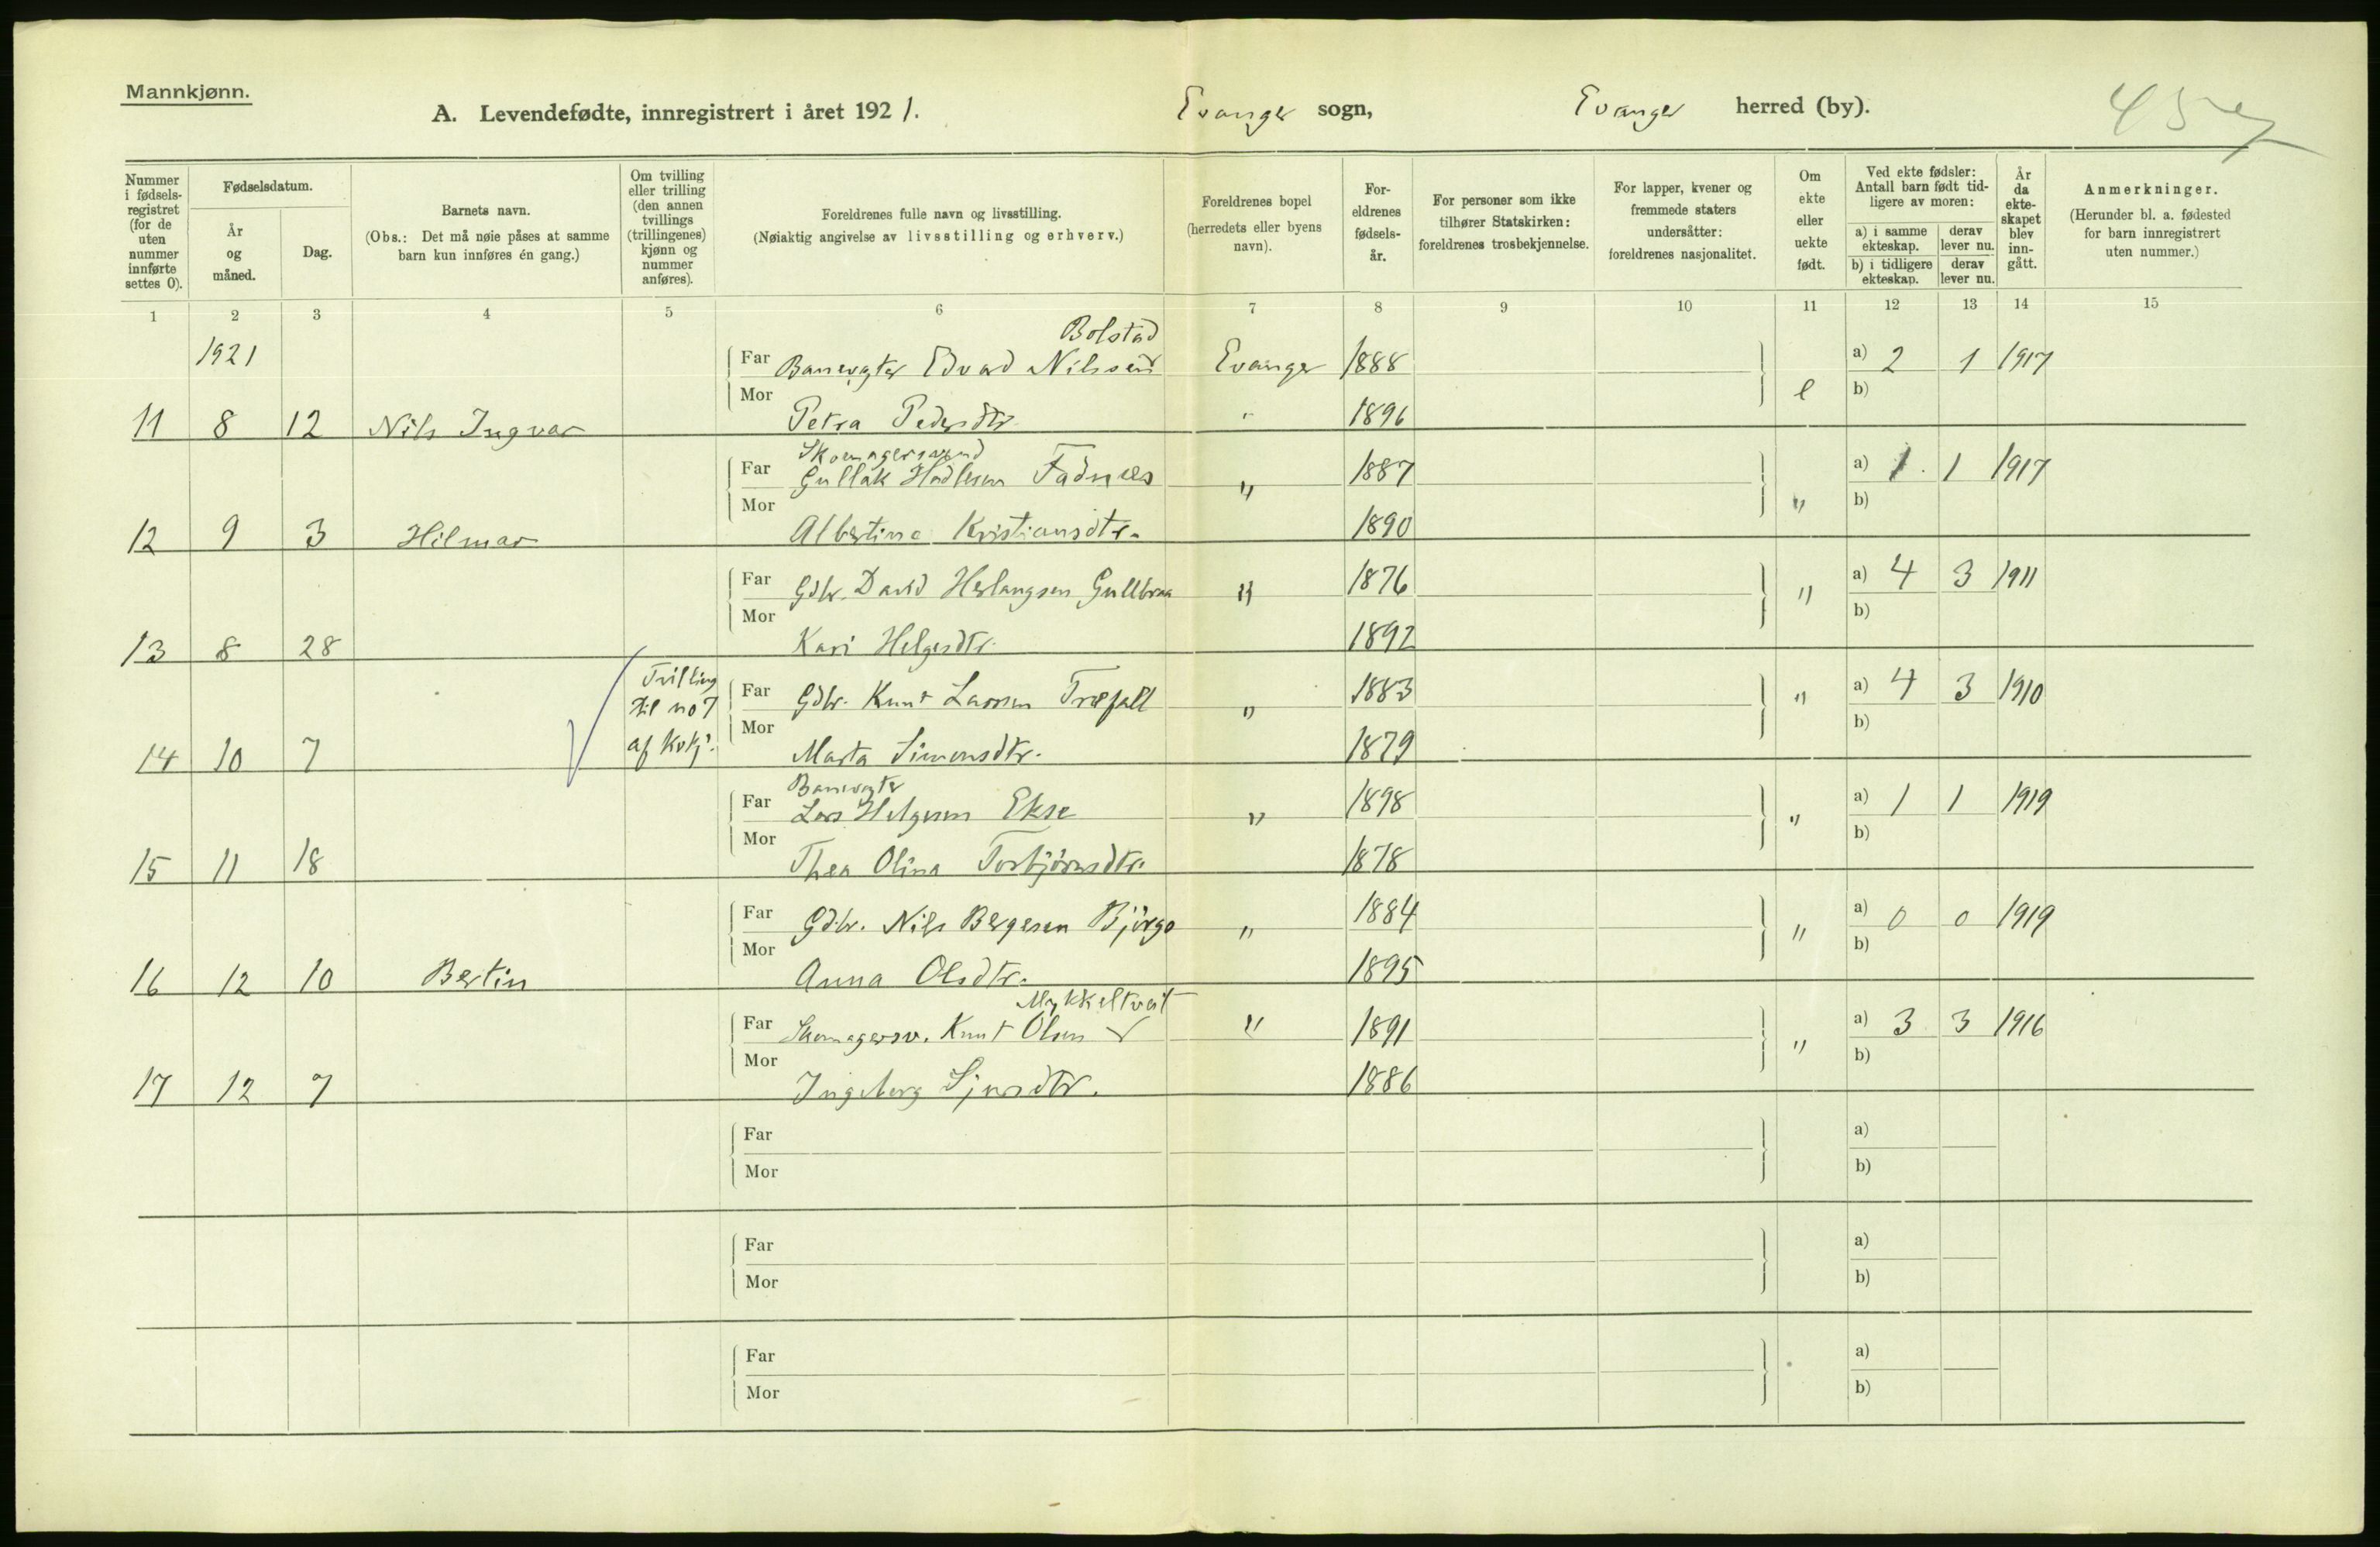 Mannkjønn.
A. Levendefødte, innregistrert i året 1921. Evanger sogn, Evanger herred (by). 457
Nummer i fødselsregistret (for de uten nummer innførte settes 0).
Fødselsdatum.
År og måned.
Dag.
Barnets navn.
(Obs.: Det må nøie påses at samme barn kun innføres én gang.)
Om tvilling eller trilling (den annen tvillings (trillingenes) kjønn og nummer anføres).
Foreldrenes fulle navn og livsstilling.
(Nøiaktig angivelse av livsstilling og erhverv.)
Foreldrenes bopel (herredets eller byens navn).
Foreldrenes fødselsår.
For personer som ikke tilhører Statskirken: foreldrenes trosbekjennelse.
For lapper, kvener og fremmede staters undersåtter: foreldrenes nasjonalitet.
Om ekte eller uekte født.
Ved ekte fødsler: Antall barn født tidligere av moren:
a) i samme ekteskap. derav lever nu.
b) i tidligere ekteskap. derav lever nu.
År da ekteskapet blev inngått.
Anmerkninger.
(Herunder bl. a. fødested for barn innregistrert uten nummer.)
1 2 3 4 5 6 7 8 9 10 11 12 13 14 15
1921 Bolstad
Far Banevgter Edvard Nilssen Evanger 1888 a) 2 1 1917
Mor e b)
11 8 12 Nils Ingvar Petra Pedersdtr. " 1896
Skomagersvend
Far Gullak Hodlesen Fadnes " 1887 a) 1. 1 1917
Mor " b)
12 9 3 Hilmar Albertine Kristiansdtr. 1890
Far Gdbr. David Herlaugsen Gullbraa " 1876 " a) 4 3 1911
Mor b)
13 8 28 Kari Helgesdtr. 1892
Tvilling til no 7 af Kvkj.
Far Gdbr. Knut Larssen Træfall " 1883 " a) 4 3 1910
Mor b)
14 10 7 Marta Simonsdtr. 1879
Banevgter
Far Lars Helgesen Ekse " 1898 " a) 1 1 1919
Mor b)
15 11 18 Thea Olina Torbjörnsdtr. 1878
Far Gdbr. Nils Bergesen Björgo " 1884 " a) 0 0 1919
Mor b)
16 12 10 Bertin Anna Olsdtr. 1895
Mykkeltveit
Far Skomagersv. Knut Olsen " 1891 " a) 3 3 1916
Mor b)
17 12 7 Ingeborg Sjursdtr. 1886
Far a)
Mor b)
Far a)
Mor b)
Far a)
Mor b)